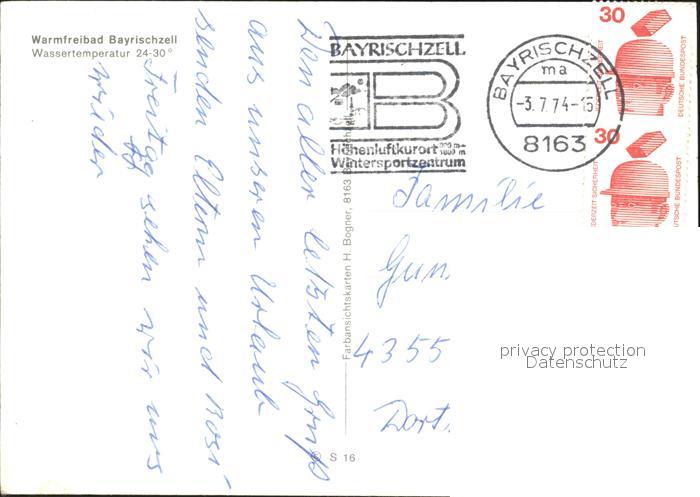 Warmfreibad Bayrischzell
Wassertemperatur 24-30°
Den aller letzten Gruß
aus unseren Urlaub
senden Eltern und Rosi
Freitag sehen wir uns
wieder
BAYRISCHZELL
B
Höhenluftkurort
Wintersportzentrum
BAYRISCHZELL
ma
-3.7.74-15
8163
30
DEUTSCHE BUNDESPOST
30
JEDERZEIT SICHERHEIT
DEUTSCHE BUNDESPOST
Familie
Gun.
4355
Dort.
Farbansichtskarten H. Bogner, 8163
© S 16
privacy protection
Datenschutz